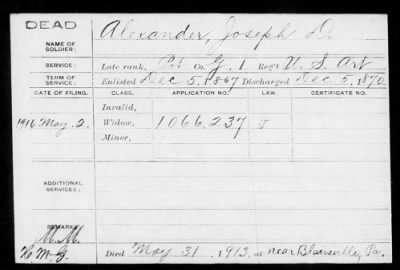 DEAD
NAME OF SOLDIER: Alexander, Joseph D.
SERVICE: Late rank, Pvt Co. G, 1 Reg't U. S. Art
TERM OF SERVICE: Enlisted Dec 5, 1867 Discharged Dec 5, 1870
DATE OF FILING. CLASS. APPLICATION NO. LAW. CERTIFICATE NO.
Invalid,
1916 May. 2. Widow, 1066.237
Minor,
ADDITIONAL SERVICES:
REMARKS:
M. M.
M. G. Died May 31, 1913, at near Blairsville, Pa.